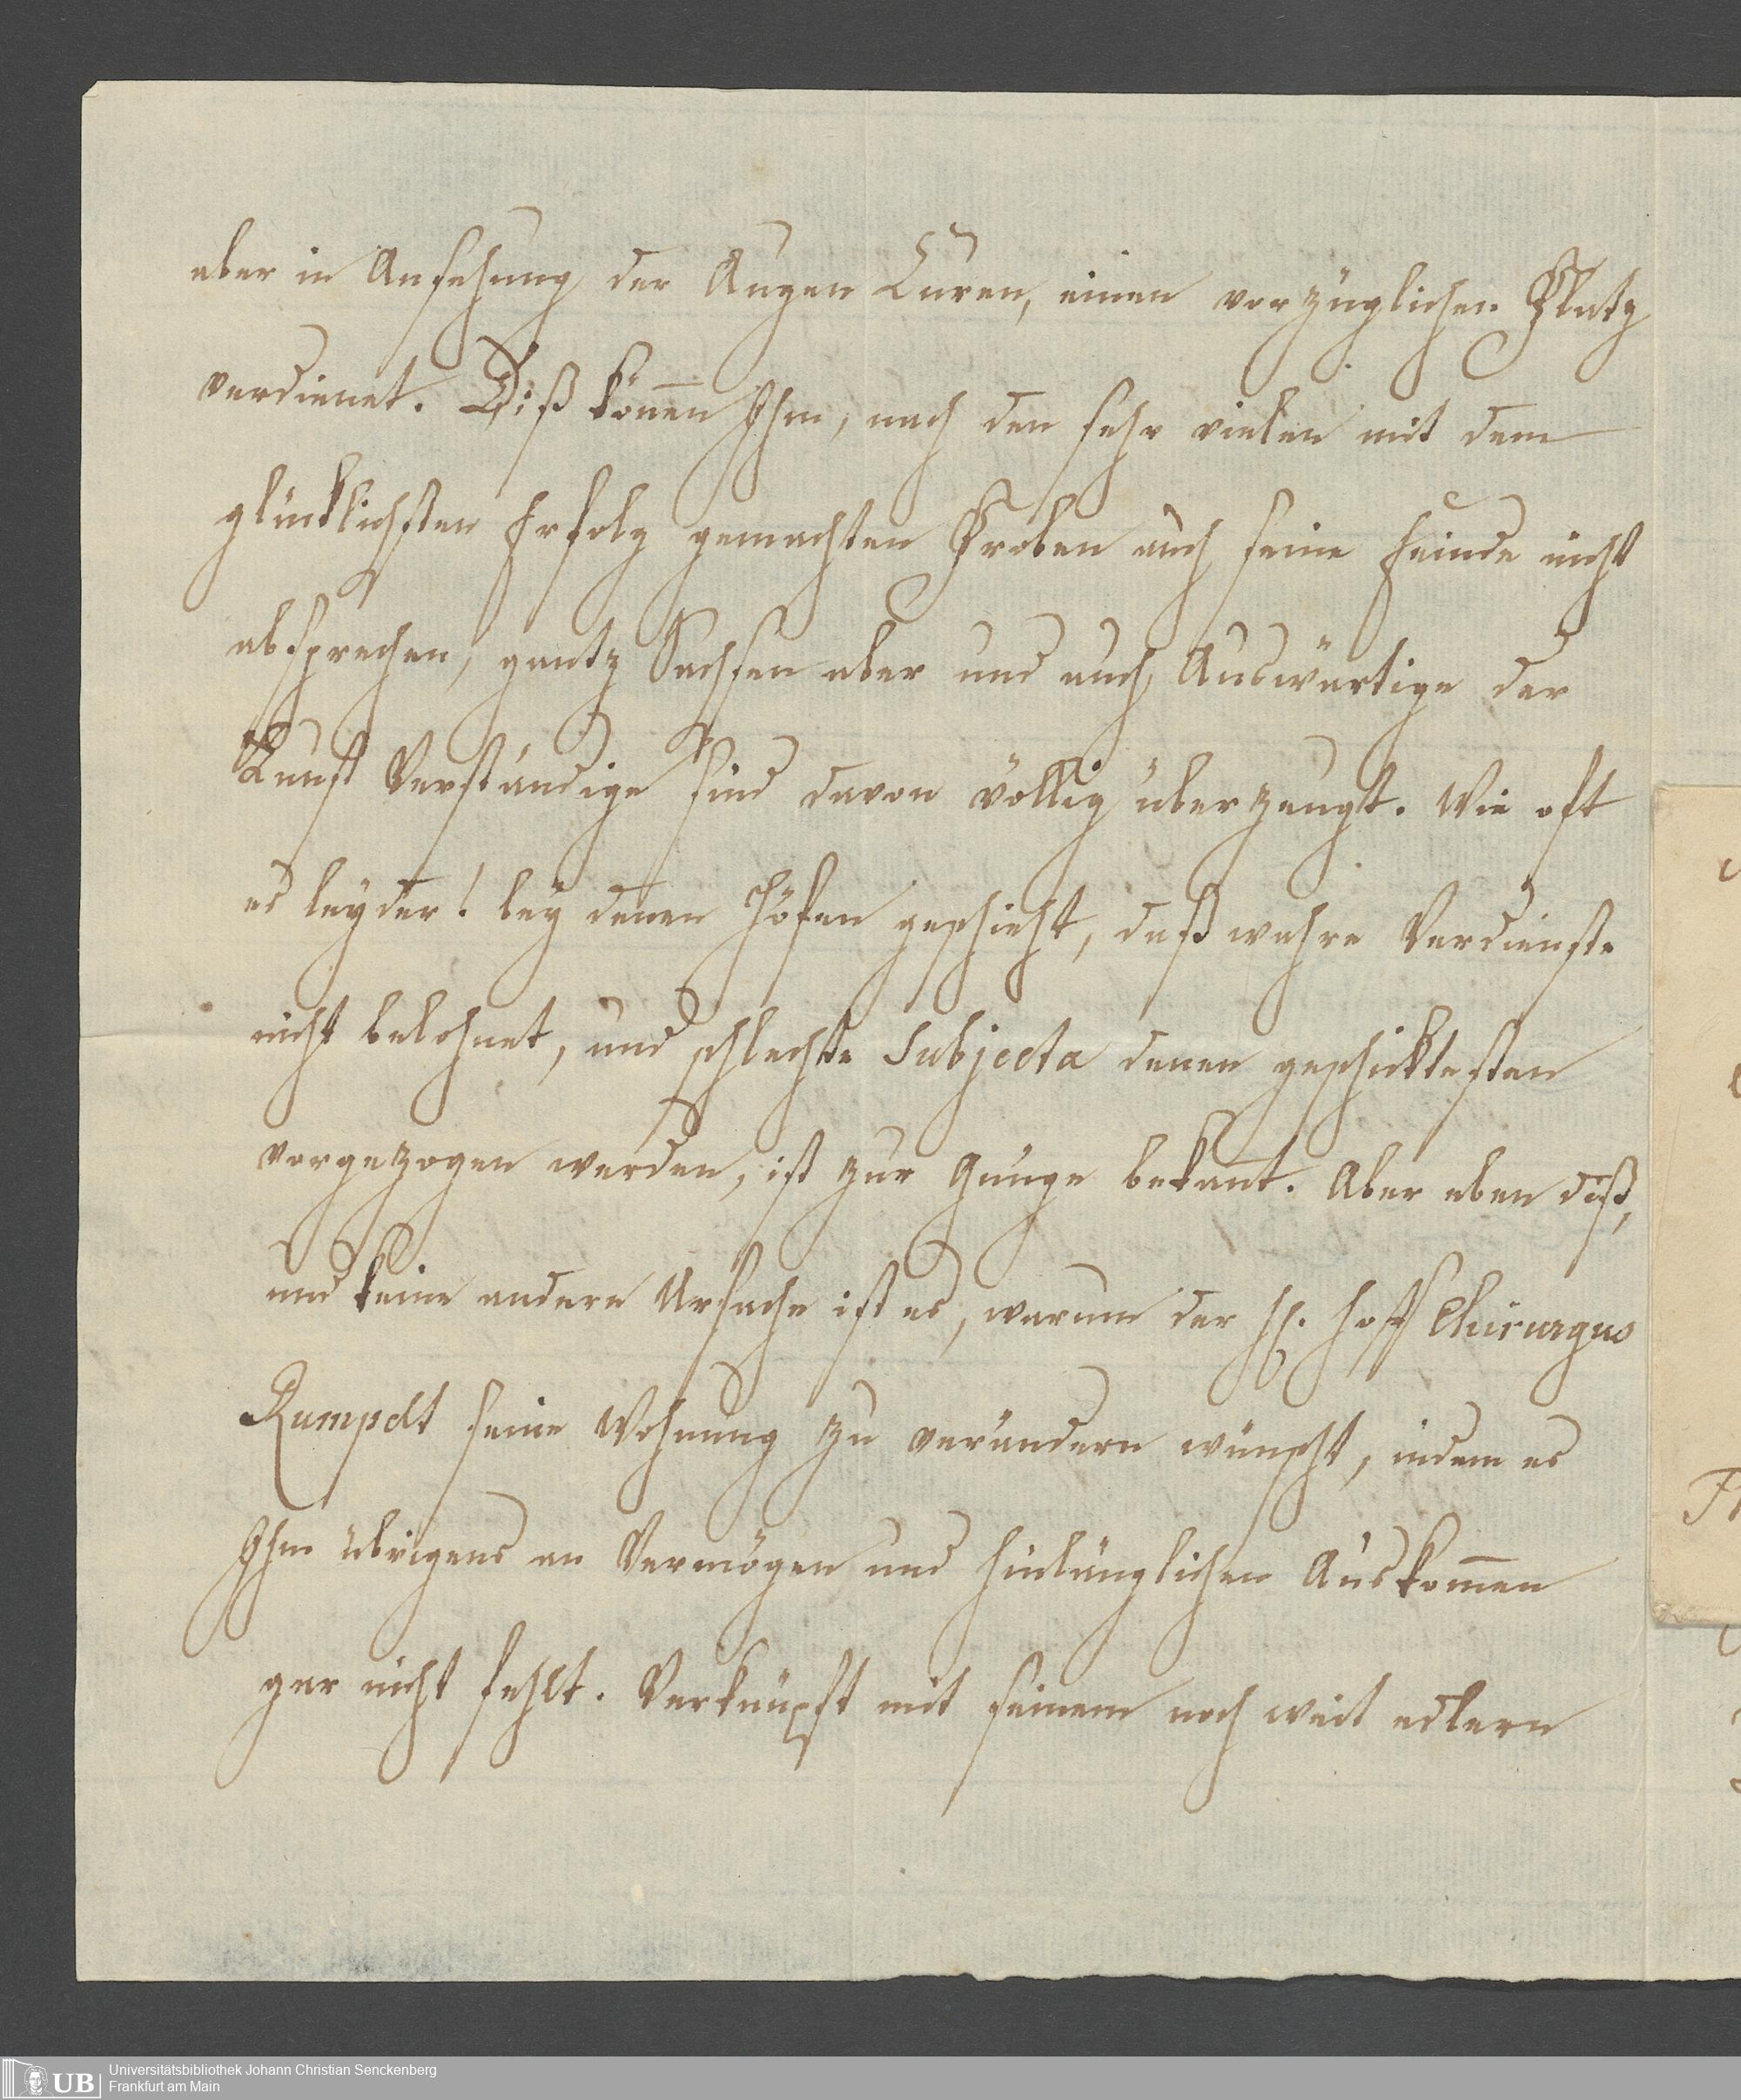 aber in Ansehung der Augen Curen, einen vorzüglichen Platz
verdienet. Diß könen Ihm, nach den sehr vielen mit dem
glücklichsten Erfolg gemachten Proben auch seine Feinde nicht
absprechen, gantz Sachsen aber und auch Auswärtige der
Kunst Verständige sind davon völlig überzeugt. Wie oft
es leyder! bey denen Höfen geschieht, daß wahre Verdienste
nicht belohnet, und schlechte Subjecta denen geschicktesten
vorgezogen werden, ist zur Gnüge bekant. Aber eben diß,
und keine andere Ursache ist es, warum der H. Hoff Chirurgus
Rumpelt seine Wohnung zu verändern wünscht, indem es
Ihm übrigens an Vermögen und hinlänglichen Auskomen
gar nicht fehlt. Verknüpft mit seinem noch weit edlern
UB Universitätsbibliothek Johann Christian Senckenberg
Frankfurt am Main